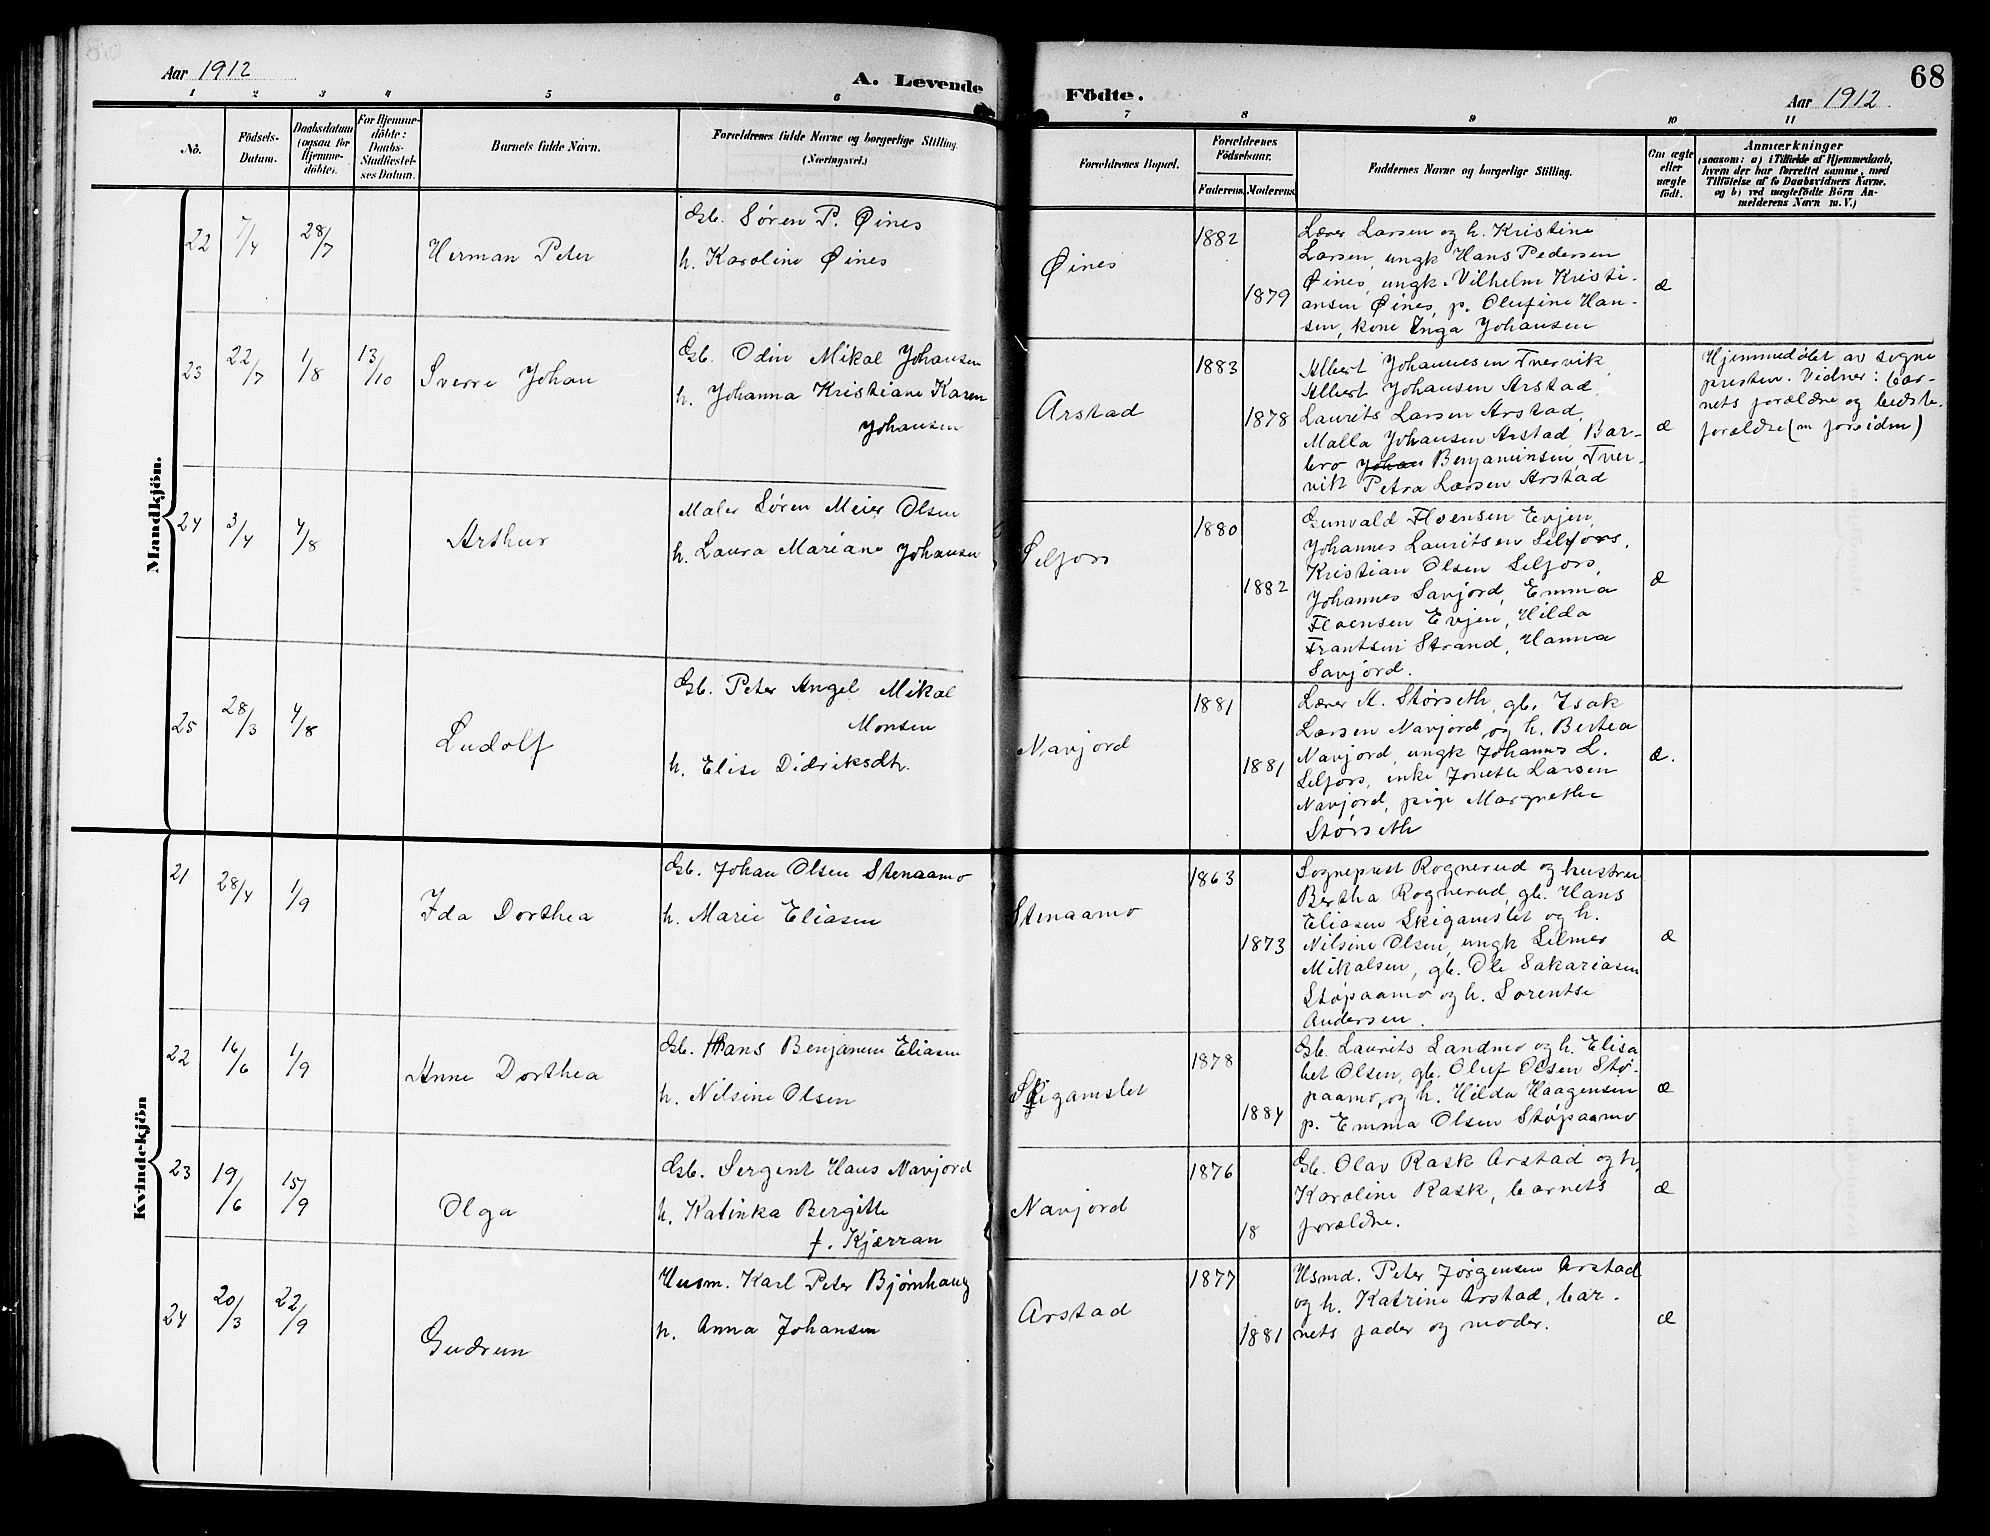 Aar 1912
A. Levende
Fødte.
Aar 1912
68
1 2 3 4 5 6 7 8 9 10 11
No.
Fødsels-
Datum.
Daabsdatum
(ogsaa for
Hjemme-
døbte).
For Hjemme-
døbte:
Daabs-
Stadfæstel-
ses Datum.
Barnets fulde Navn.
Forældrenes fulde Navne og borgerlige Stilling.
(Næringsvei.)
Forældrenes Bopæl.
Forældrenes
Fødselsaar.
Faderens.
Moderens.
Faddernes Navne og borgerlige Stilling.
Om ægte
eller
uægte
født.
Anmærkninger
(saasom: a) i Tilfælde af Hjemmedaab,
hvem der har forrettet samme, med
Tilføielse af to Daabsvidners Navne,
og b) ved uægtefødte Børn An-
melderens Navn m. V.)
Mandkjøn.
22
7/4
28/7
Herman Peter
Gb. Søren P. Øines
h. Karoline Øines
Øines
1882
1879
Lærer Larsen og h. Kristine
Larsen, ungk Hans Pedersen
Øines, ungk. Vilhelm Kristi-
ansen Øines, p. Olufine Han-
sen, kone Inga Johansen
æ
23
22/7
1/8
13/10
Sverre Johan
Gb. Odin Mikal Johansen
h. Johanna Kristiane Karen
Johansen
Arstad
1883
1878
Albert Johannesen Tvervik,
Albert Johansen Arstad,
Laurits Larsen Arstad,
Malla Johansen Arstad, Bar-
bro Johan Benjaminsen Tver-
vik Petra Larsen Arstad
æ
Hjemmedøbt av sogne
presten. Vidner: bar-
nets forældre og bedste-
forældre (m forsiden)
24
3/4
4/8
Arthur
Maler Søren Meier Olsen
h. Laura Mariane Johansen
Selfors
1880
1882
Gunvald Floensen Evjen,
Johannes Lauritsen Selfors,
Kristian Olsen Selfors,
Johannes Savjord, Emma
Floensen Evjen, Hilda
Frantsen Strand, Hanna
Savjord.
æ
25
28/3
4/8
Ludolf
Gb. Peter Angel Mikal
Monsen
h. Elise Didriksdtr.
Navjord
1881
1881
Lærer M. Størseth, gb. Isak
Larsen Navjord, og h. Bertea
Navjord, ungk Johannes L.
Selfors, enke Jonette Larsen
Navjord, pige Margrethe
Størseth
æ.
Kvindekjøn
21
28/4
1/9
Ida Dorthea
Gb. Johan Olsen Stenaamo
h. Marie Eliasen
Stenaamo
1863
1873
Sogneprest Rognerud og hustru
Bertha Rognerud, gb. Hans
Eliasen Skigamslet og h.
Nilsine Olsen, ungk Selmer
Mikalsen, gb. Ole Sakariasen
Støpaamo og h. Lorentse
Andersen.
æ
22
16/6
1/9
Anne Dorthea
Gb. Hans Benjamin Eliasen
h. Nilsine Olsen
Skigamslet
1878
1884
Gb. Laurits Landmo og h. Elisa
bet Olsen, gb. Oluf Olsen Stø-
paamo, og h. Hilda Haagensen
p. Emma Olsen Støpaamo
æ
23
19/6
15/9
Olga
Gb. Sergent Hans Navjord
h. Katinka Bergitte
f. Kjærran
Navjord
1876
18
Gb. Olav Rask Arstad og h.
Karoline Rask, barnets
forældre.
æ
24
20/3
22/9
Gudrun
Husm. Karl Peter Bjørnhaug
h. Anna Johansen
Arstad
1877
1881
Hsmd. Peter Jørgensen Arstad
og h. Katrine Arstad, bar-
nets fader og moder.
æ